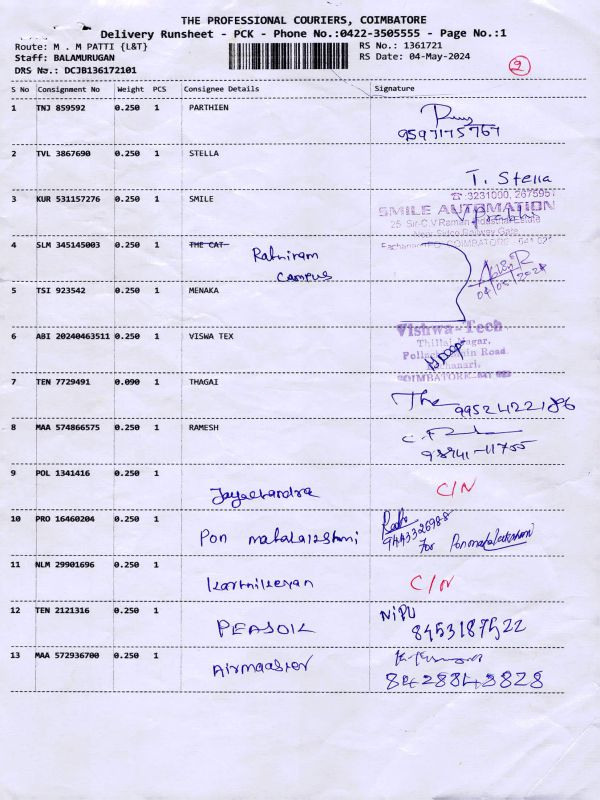 THE PROFESSIONAL COURIERS, COIMBATORE
Delivery Runsheet - PCK - Phone No.:0422-3505555 - Page No.:1
Route: M . M PATTI {L&T}
RS No.: 1361721
Staff: BALAMURUGAN
RS Date: 04-May-2024
DRS No.: DCJB136172101
2
S No Consignment No Weight PCS Consignee Details Signature
1 TNJ 859592 0.250 1 PARTHIEN
9597175767
2 TVL 3867690 0.250 1 STELLA
T. Stella
3 KUR 531157276 0.250 1 SMILE
☎ 3231000, 2675957
SMILE AUTOMATION
V. Prabhu
25, Sir-C.V Raman Industrial Estate
4 SLM 345145003 0.250 1 THE CAT
Ratniram
campus
COIMBATORE - 641 021
04/05/2024
5 TSI 923542 0.250 1 MENAKA
6 ABI 20240463511 0.250 1 VISWA TEX
Vishwa-Tech
Thillai Nagar,
Pollachi Main Road
COIMBATORE-641
7 TEN 7729491 0.090 1 THAGAI
9952422186
8 MAA 574866575 0.250 1 RAMESH
98941-11755
9 POL 1341416 0.250 1
Jayachandra C/N
10 PRO 16460204 0.250 1
Pon mahalakshmi
9443326988
For Ponmahalakshmi
11 NLM 29901696 0.250 1
karthikeyan C/N
12 TEN 2121316 0.250 1
PEASOIL
NiPU
8453187522
13 MAA 572936700 0.250 1
Airmaaster
8428843828